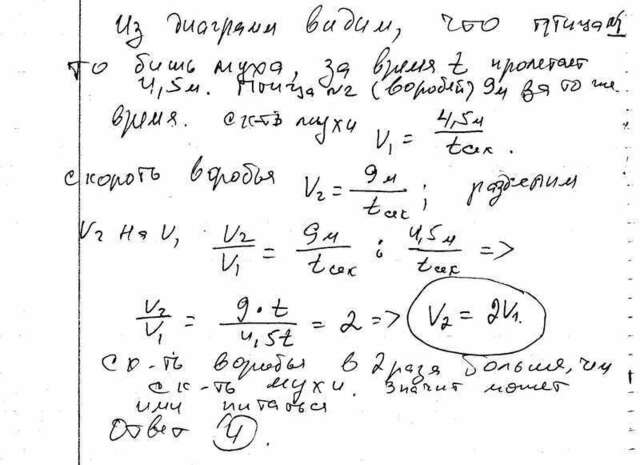 Из диаграмм видим, что птица №1
то бишь муха, за время t пролетает
4,5м. Птица №2 (воробей) 9м за то же
время. ск-ть мухи V₁ = 4,5м / t сек.
скороть воробья V₂ = 9м / t сек ; разделим
V₂ на V₁ V₂/V₁ = 9м / t сек : 4,5м / t сек =>
V₂/V₁ = 9·t / 4,5t = 2 => V₂ = 2V₁.
ск-ть воробья в 2 раза больше, чем
ск-ть мухи. Значит может
ими питаться
Ответ 4.